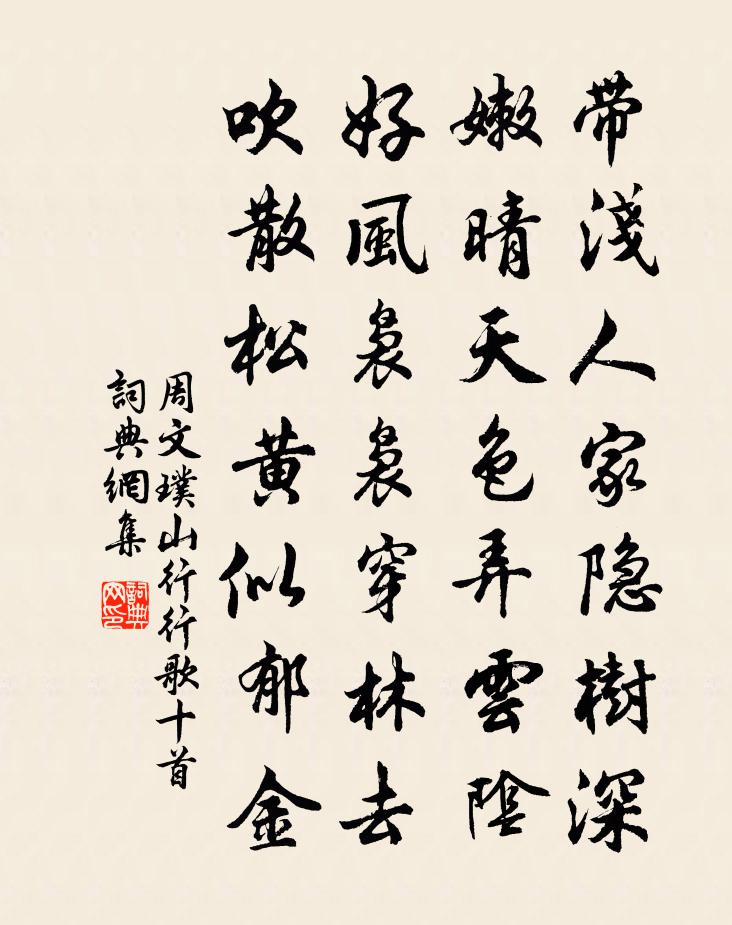 带淺人家隐樹深
嫩晴天色弄雲陰
好風裊裊穿林去
吹散松黄似郁金
周文璞山行行歌十首
詞典網集
詞典网印